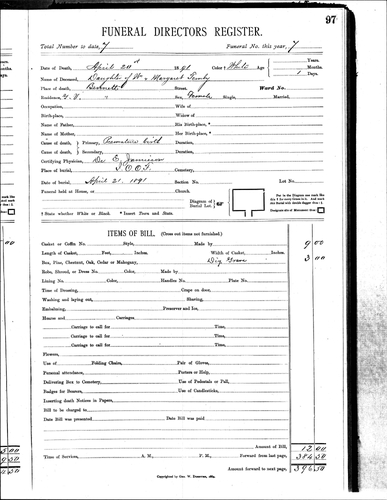 97
FUNERAL DIRECTORS REGISTER.
Total Number to date, 7 Funeral No. this year, 7
Date of Death, April 20st 1891 Color † White Age Years. Months. 1 Days.
Name of Deceased, Daughter of Wm & Margaret
Place of death, Bennett Street, Ward No.
Residence, Sex, Female Single, Married,
Occupation, Wife of
Birth-place, Widow of
Name of Father, His Birth-place *
Name of Mother, Her Birth-place *
Cause of death, Primary, Premature birth Duration,
Cause of death, Secondary, Duration,
Certifying Physician, Dr E. Jamison
Place of burial, I.O.O.F. Cemetery,
Date of burial, April 21, 1891 Section No. Lot No.
Funeral held at Home, or Church,
Diagram of Burial Lot,
Put in the Diagram one mark like this I for every Grave in it. And the Burial with double dagger thus ‡
Designate site of Monument thus
† State whether White or Black. * Insert Town and State.
ITEMS OF BILL. (Cross out items not furnished.)
Casket or Coffin No. Style, Made by 9 00
Length of Casket, Feet, Inches. Width of Casket, Inches. 3 00
Box, Pine, Chestnut, Oak, Cedar or Mahogany, Dig Grave
Robe, Shroud, or Dress No. Color, Made by
Lining No. Color, Handles No. Plate No.
Time of Dressing, Crape on door,
Washing and laying out, Shaving,
Embalming, Preserver and Ice,
Hearse and Carriages,
Carriage to call for Time,
Carriage to call for Time,
Carriage to call for Time,
Carriage to call for Time,
Flowers,
Use of Folding Chairs, Pair of Gloves,
Personal attendance, Porters or Help,
Delivering Box to Cemetery, Use of Pedestals or Pall,
Badges for Bearers, Use of Candlesticks,
Inserting death Notices in Papers,
Bill to be charged to
Date Bill was presented Date Bill was paid
Amount of Bill, 12 00
Time of Services, A. M., P. M., Forward from last page, 384 50
Amount forward to next page, 396 50
Copyrighted by Geo. W. Donovan, 1884